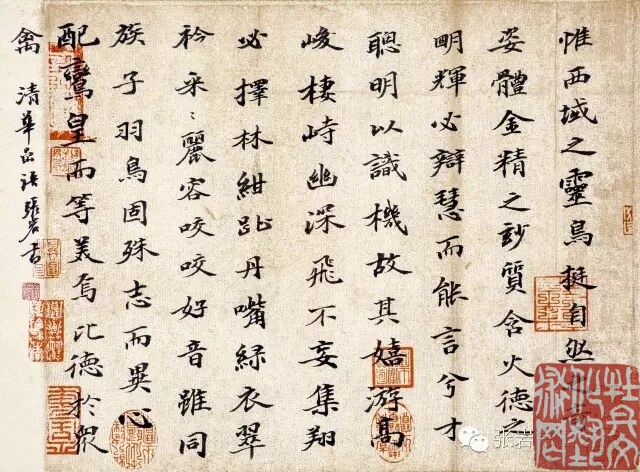 惟西域之靈鳥挺自然
姿體金精之妙質含火德之
明輝必辯慧而能言兮才
聰明以識機故其嬉游高
峻棲峙幽深飛不妄集翔
必擇林紺趾丹嘴綠衣翠
衿采〻麗容咬咬好音雖同
族子羽鳥固殊志而異心
配鸞皇而等美焉比德於眾
禽 清華 張岩書
张岩